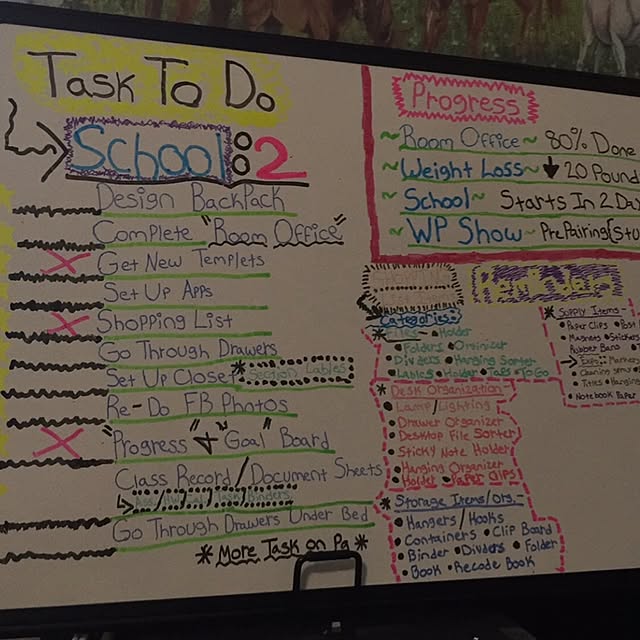 Task To Do
School: 2
Design BackPack
Complete "Room Office"
Get New Templets
Set Up Apps
Shopping List
Go Through Drawers
Set Up Closet * Section Lables
Re-Do FB Photos
"Progress" + "Goal" Board
Class Record/Document Sheets
Go Through Drawers Under Bed
* More Task on Pa *
Progress
~Room Office~ 80% Done
~Weight Loss~ ↓ 20 Pound
~School~ Starts In 2 Day
~WP Show~ PrePairing(stu
Reminders
Categories:
Holder
• Folders • Orginizer
• Dividers • Hanging Sorter
• Lables • Holder • Tabs • To Go
* Desk Organization
• Lamp/Lighting
• Drawer Organizer
• Desktop File Sorter
• Sticky Note Holder
• Hanging Organizer
Holder • Paper Clips
* Storage Items/Org.-
• Hangers/Hooks
• Containers • Clip Board
• Binder • Dividers • Folder
• Book • Recode Book
* Supply Items-
• Paper Clips • Post
• Magnets • Stickers
• Rubber Band
Marker
• Cleaning Items
• Titles • Hanging
• Notebook Paper